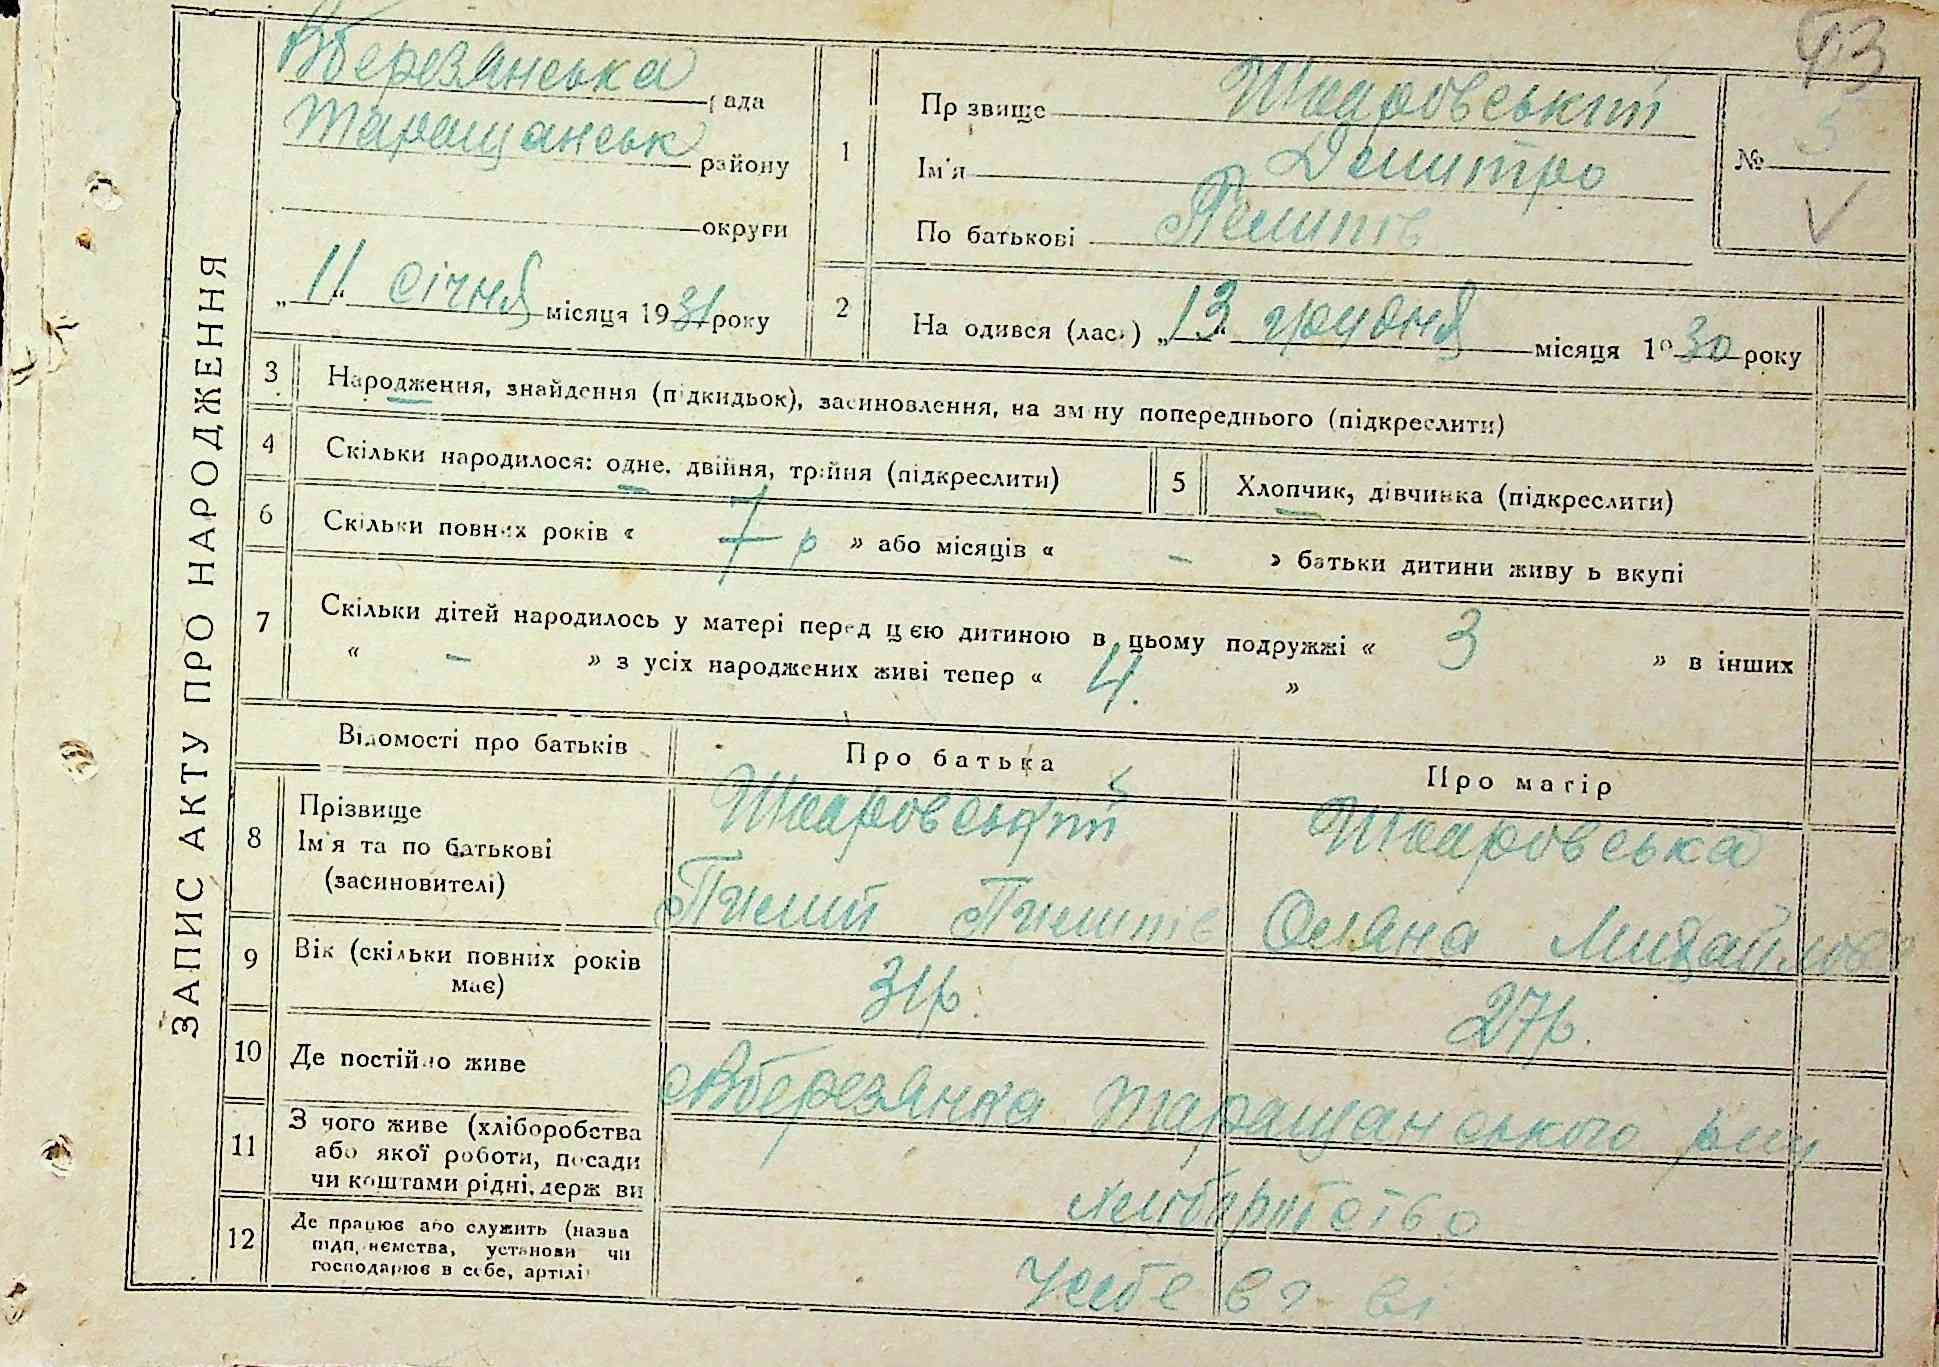 ЗАПИС АКТУ ПРО НАРОДЖЕННЯ
ВБерезянська рада
Таращанськ району
округи
„11“ січня місяця 1931 року
1
Прізвище Шкаровський
Ім'я Демитро
По батькові
№ 5
2
На одився (лась) „13“ грудня місяця 1930 року
3 Народження, знайдення (підкидьок), засиновлення, на зміну попереднього (підкреслити)
4 Скільки народилося: одне, двійня, трійня (підкреслити)
5 Хлопчик, дівчинка (підкреслити)
6 Скільки повних років « 7 р » або місяців « - » батьки дитини живуть вкупі
7 Скільки дітей народилось у матері перед цією дитиною в цьому подружжі « 3 » в інших
« - » з усіх народжених живі тепер « 4. »
Відомості про батьків Про батька Про матір
8 Прізвище
Ім'я та по батькові
(засиновителі)
Шкаровський
Шкаровська
Оляна Михайлова
9 Вік (скільки повних років
має)
31р. 27р.
10 Де постійно живе
ВБерезянка Таращанського
11 З чого живе (хліборобства
або якої роботи, посади
чи коштами рідні, держ ви
12 Де працює або служить (назва
підприємства, установи чи
господарює в себе, артілі